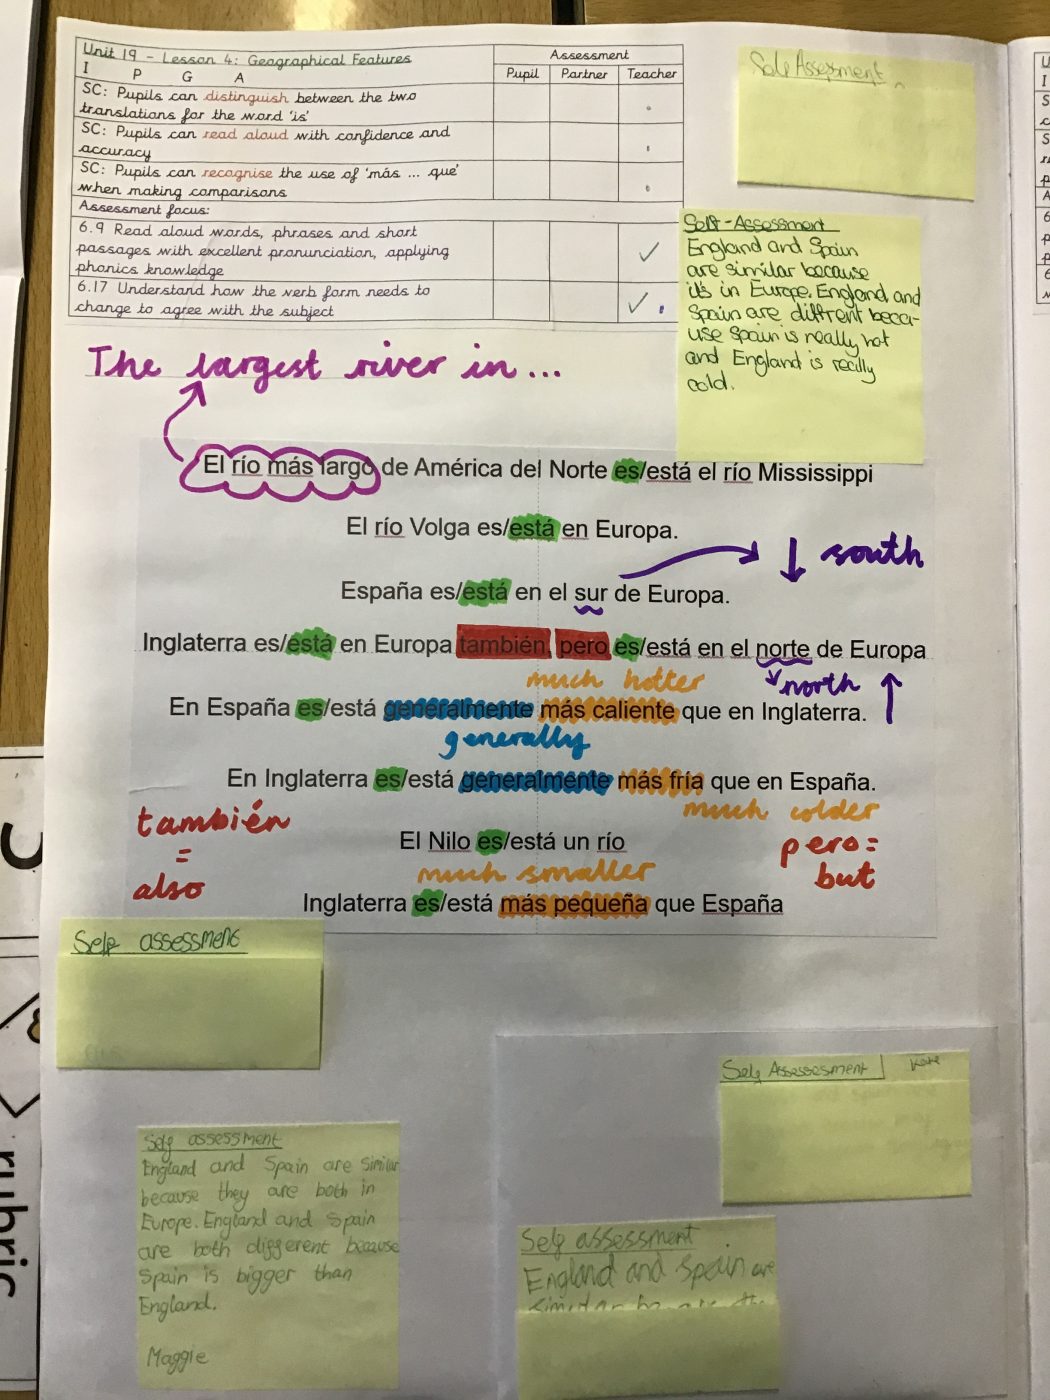 Unit 19 - Lesson 4: Geographical Features
I P G A
Assessment
Pupil Partner Teacher
SC: Pupils can distinguish between the two
translations for the word 'is'
SC: Pupils can read aloud with confidence and
accuracy
SC: Pupils can recognise the use of 'más ... que'
when making comparisons
Assessment focus:
6.9 Read aloud words, phrases and short
passages with excellent pronunciation, applying
phonics knowledge
6.17 Understand how the verb form needs to
change to agree with the subject
Self Assessment
Self-Assessment
England and Spain
are similar because
it's in Europe. England and
Spain are diffrent beca-
use Spain is really hot
and England is really
cold.
The largest river in...
El río más largo de América del Norte es/está el río Mississippi
El río Volga es/está en Europa.
south
España es/está en el sur de Europa.
Inglaterra es/está en Europa también, pero es/está en el norte de Europa
much hotter
north
En España es/está generalmente más caliente que en Inglaterra.
generally
En Inglaterra es/está generalmente más fría que en España.
también
=
also
much colder
pero =
but
El Nilo es/está un río
much smaller
Inglaterra es/está más pequeña que España
Self assessment
Self Assessesment
Self assessment
England and Spain are similar
because they are both in
Europe. England and Spain
are both different because
Spain is bigger than
England.
Maggie
Self assessment
England and Spain are
rubric